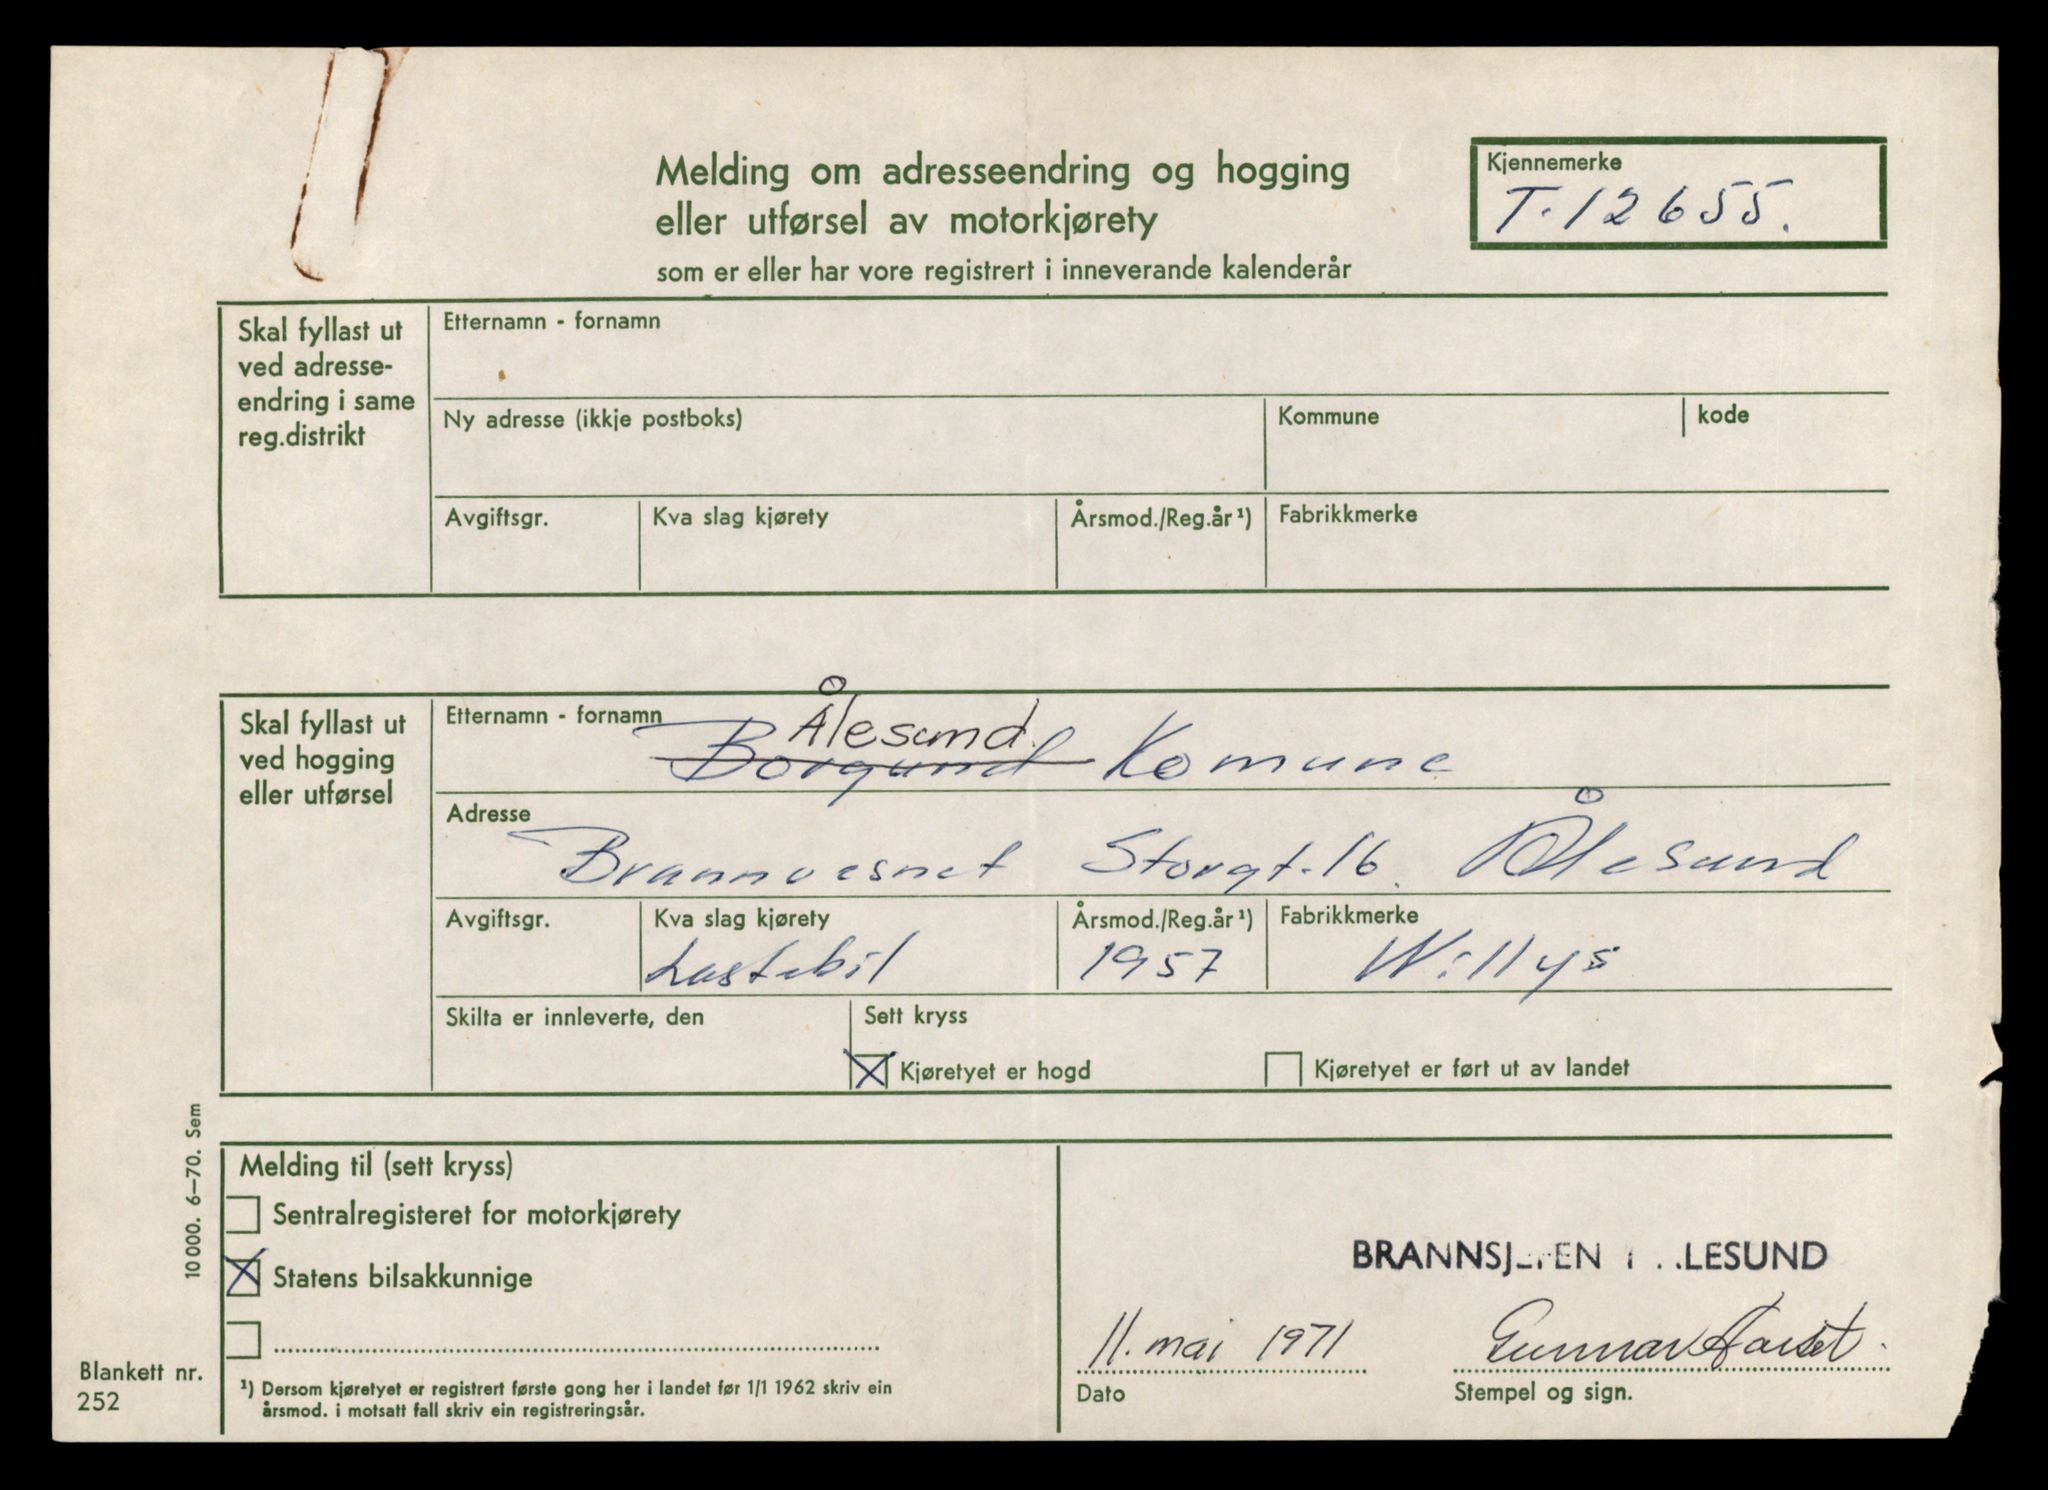 Melding om adresseendring og hogging
eller utførsel av motorkjørety
som er eller har vore registrert i inneverande kalenderår
Kjennemerke
T-12655.
Skal fyllast ut
ved adresse-
endring i same
reg.distrikt
Etternamn - fornamn
Ny adresse (ikkje postboks)
Kommune
kode
Avgiftsgr.
Kva slag kjørety
Årsmod./Reg.år ¹)
Fabrikkmerke
Skal fyllast ut
ved hogging
eller utførsel
Etternamn - fornamn
Ålesund
Borgund Komune
Adresse
Brannvesnet Storgt. 16. Ålesund
Avgiftsgr.
Kva slag kjørety
Lastebil
Årsmod./Reg.år ¹)
1957
Fabrikkmerke
Willys
Skilta er innleverte, den
Sett kryss
Kjøretyet er hogd
Kjøretyet er ført ut av landet
Melding til (sett kryss)
Sentralregisteret for motorkjørety
Statens bilsakkunnige
¹) Dersom kjøretyet er registrert første gong her i landet før 1/1 1962 skriv ein
årsmod. i motsatt fall skriv ein registreringsår.
BRANNSJEFEN I ÅLESUND
11. mai 1971
Gunnar Aarset.
Dato
Stempel og sign.
10000. 6-70. Sem
Blankett nr.
252